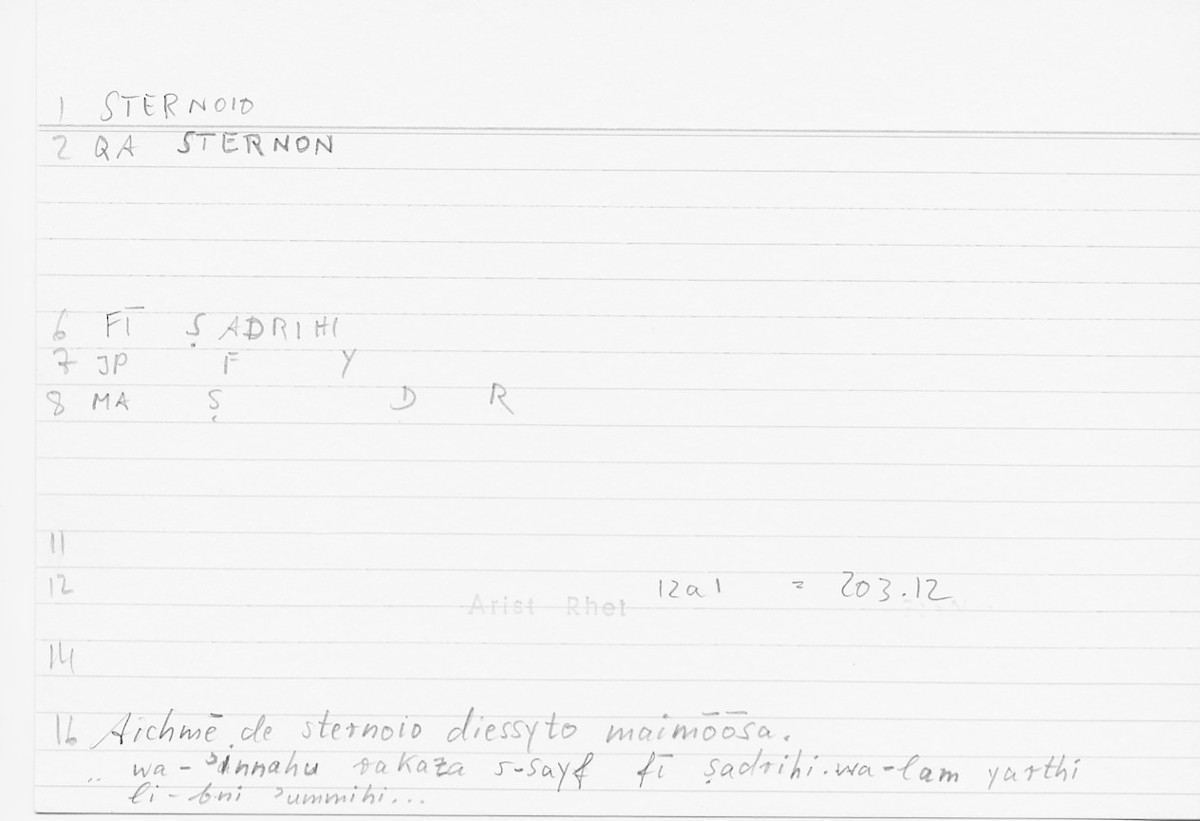 1 STERNOIO
2 QA STERNON
6 FĪ ṢADRIHI
7 JP F Y
8 MA Ṣ D R
11
12 Arist Rhet 12a1 = 203.12
14
16 Aichmē de sternoio diessyto maimōōsa.
.. wa-ʾinnahu rakaza s-sayf fī ṣadrihi.wa-lam yarthi
li-bni ʾummihi...